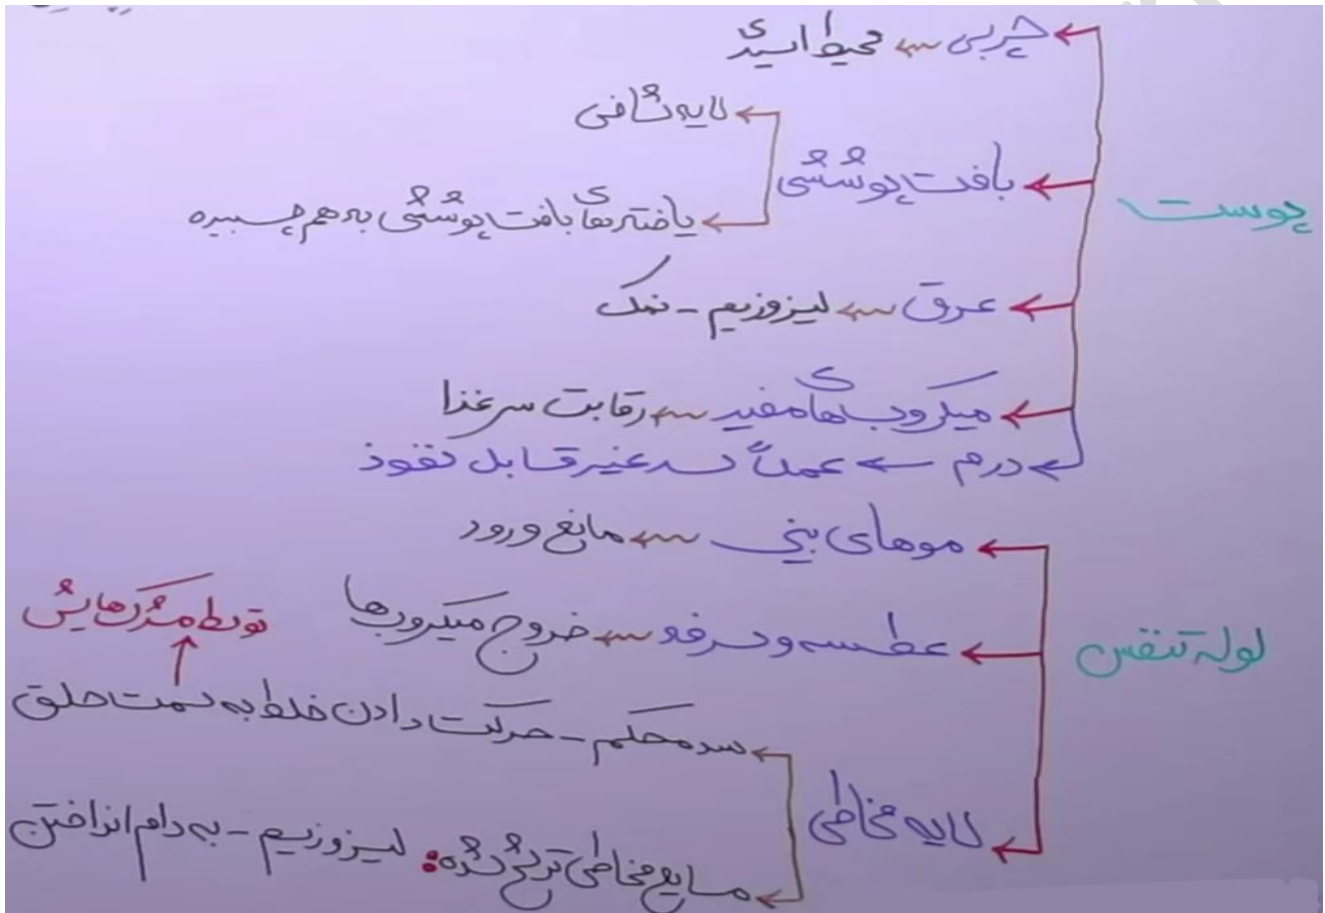 پوست
چربی ← محیط اسیدی
بافت پوششی
لایه شاخی
یاخته‌های بافت پوششی به هم چسبیده
عرق ← لیزوزیم - نمک
میکروب‌های مفید ← رقابت سر غذا
درم ← عمدتاً سد غیر قابل نفوذ
لوله تنفس
موهای بینی ← مانع ورود
عطسه و سرفه ← خروج میکروب‌ها
لایه مخاطی
توسط مژک‌هایش
سد محکم - حرکت دادن خلط به سمت حلق
مایع مخاطی ترشح شده: لیزوزیم - به دام انداختن